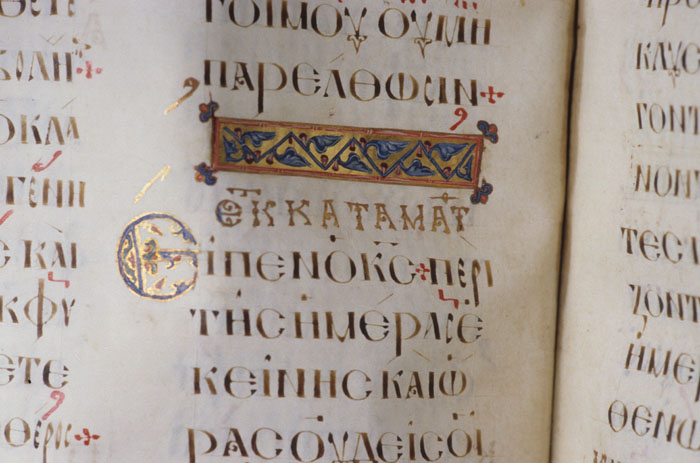 ΒΟΛΗ+
ΟΚΛΑ
ΓΕΝΗ
ϹΚΑΙ
ΚΦΥ
ΕΤΕ
ΘΕΡΟϹ+
ΓΟΙΜΟΥ ΟΥΜΗ
ΠΑΡΕΛΘΩϹΙΝ+
ΕΚ ΚΑΤΑ ΜΑΤ
ΕΙΠΕΝ Ο ΚϹ+ΠΕΡΙ
ΤΗϹ ΗΜΕΡΑϹ Ε
ΚΕΙΝΗϹ ΚΑΙ Ω
ΡΑϹ ΟΥΔΕΙϹ ΟΙ
ΚΛΥϹ
ΓΟΝΤ
ΤΕϹ
ΖΟΝΤ
ΗΜΕΡ
ΘΕΝΩ